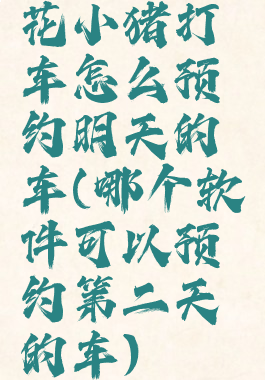 花小猪打
车怎么预
约明天的
车(哪个软
件可以预
约第二天
的车)